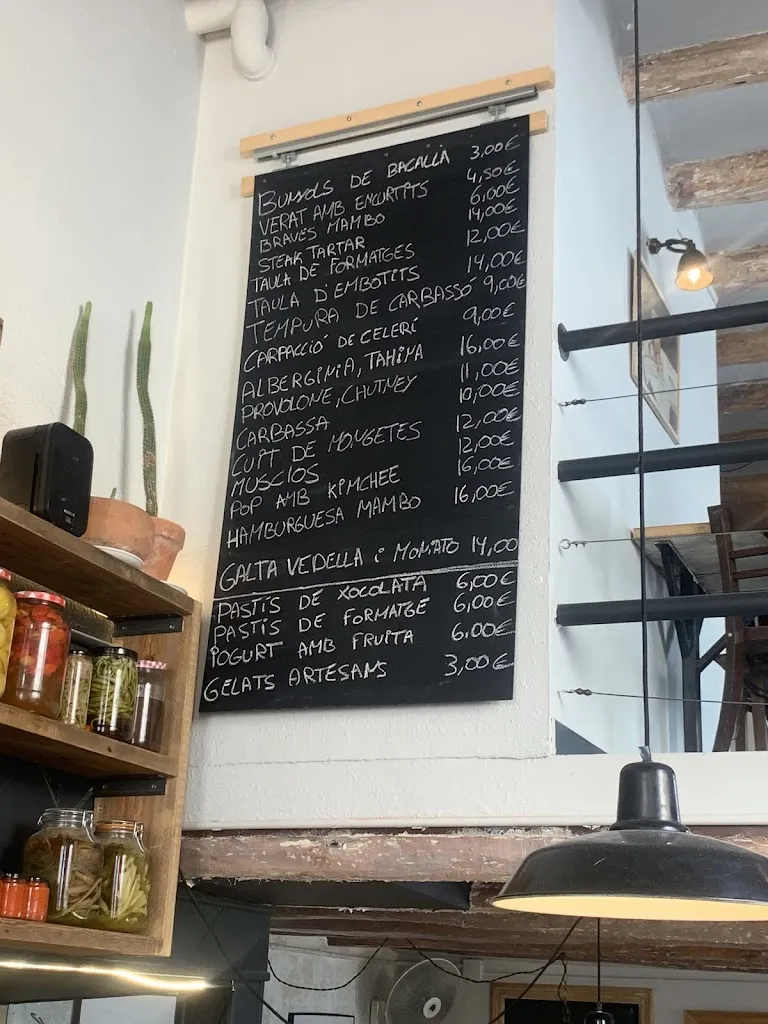 BUNYOLS DE BACALLÀ 3,00€
VERAT AMB ENCURTITS 4,50€
BRAVES MAMBO 6,00€
STEAK TARTAR 14,00€
TAULA DE FORMATGES 12,00€
TAULA D'EMBOTITS 14,00€
TEMPURA DE CARBASSÓ 9,00€
CARPACCIÓ DE CELERÍ 9,00€
ALBERGINIA, TAHINA 16,00€
PROVOLONE, CHUTNEY 11,00€
CARBASSA 10,00€
CUIT DE MONGETES 12,00€
MUSCLOS 12,00€
POP AMB KIMCHEE 16,00€
HAMBURGUESA MAMBO 16,00€
GALTA VEDELLA i MONIATO 14,00
PASTÍS DE XOCOLATA 6,00€
PASTÍS DE FORMATGE 6,00€
IOGURT AMB FRUITA 6,00€
GELATS ARTESANS 3,00€